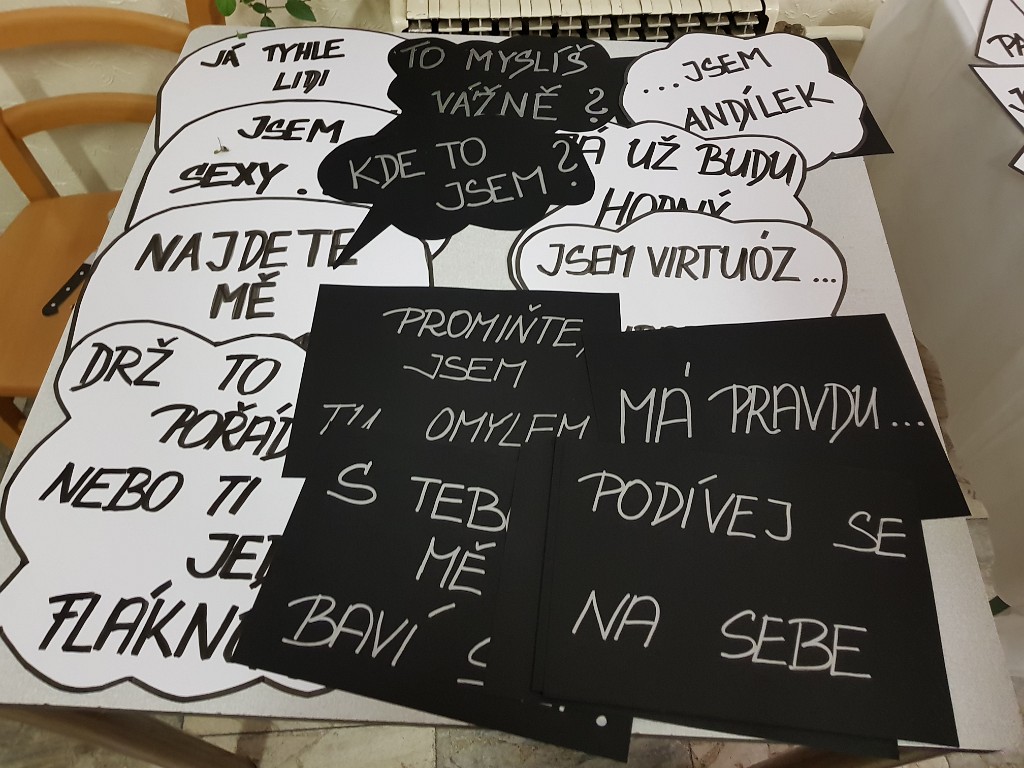 JÁ TYHLE
LIDI
JSEM
SEXY.
NAJDETE
MĚ
DRŽ TO
POŘÁD
NEBO TI
FLÁKN
TO MYSLÍŠ
VÁŽNĚ ?
KDE TO
JSEM ?
....JSEM
ANDÍLEK
UŽ BUDU
HODNÝ
JSEM VIRTUÓZ...
PROMIŇTE,
JSEM
OMYLEM
S TEB
MĚ
BAVÍ
MÁ PRAVDU...
PODÍVEJ SE
NA SEBE